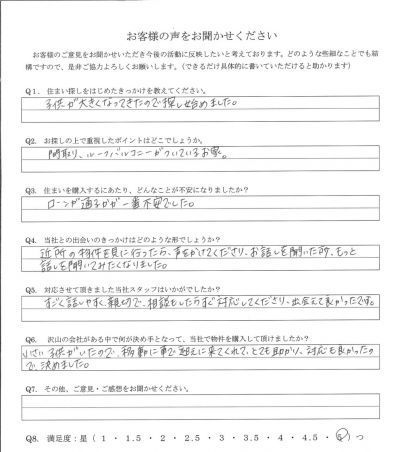 お客様の声をお聞かせください
お客様のご意見をお聞かせいただき今後の活動に反映したいと考えております。どのような些細なことでも結
構ですので、是非ご協力よろしくお願いします。（できるだけ具体的に書いていただけると助かります）
Q1. 住まい探しをはじめたきっかけを教えてください。
子供が大きくなってきたので探し始めました。
Q2. お探しの上で重視したポイントはどこでしょうか。
間取り、ルーフバルコニーがついているお家。
Q3. 住まいを購入するにあたり、どんなことが不安になりましたか？
ローンが通るかが一番不安でした。
Q4. 当社との出会いのきっかけはどのような形でしょうか？
近所の物件を見に行ったら、声をかけてくださり、お話しを聞いた所、もっと
話しを聞いてみたくなりました。
Q5. 対応させて頂きました当社スタッフはいかがでしたか？
すごく話しやすく親切で、相談をしたらすぐ対応してくださり、出会えて良かったです。
Q6. 沢山の会社がある中で何が決め手となって、当社で物件を購入して頂けましたか？
小さい子供がいたので、移動に車で迎えに来てくれて、とても助かり、対応も良かったの
で、決めました。
Q7. その他、ご意見・ご感想をお聞かせください。
Q8. 満足度：星（ 1 ・ 1.5 ・ 2 ・ 2.5 ・ 3 ・ 3.5 ・ 4 ・ 4.5 ・ 5 ）つ